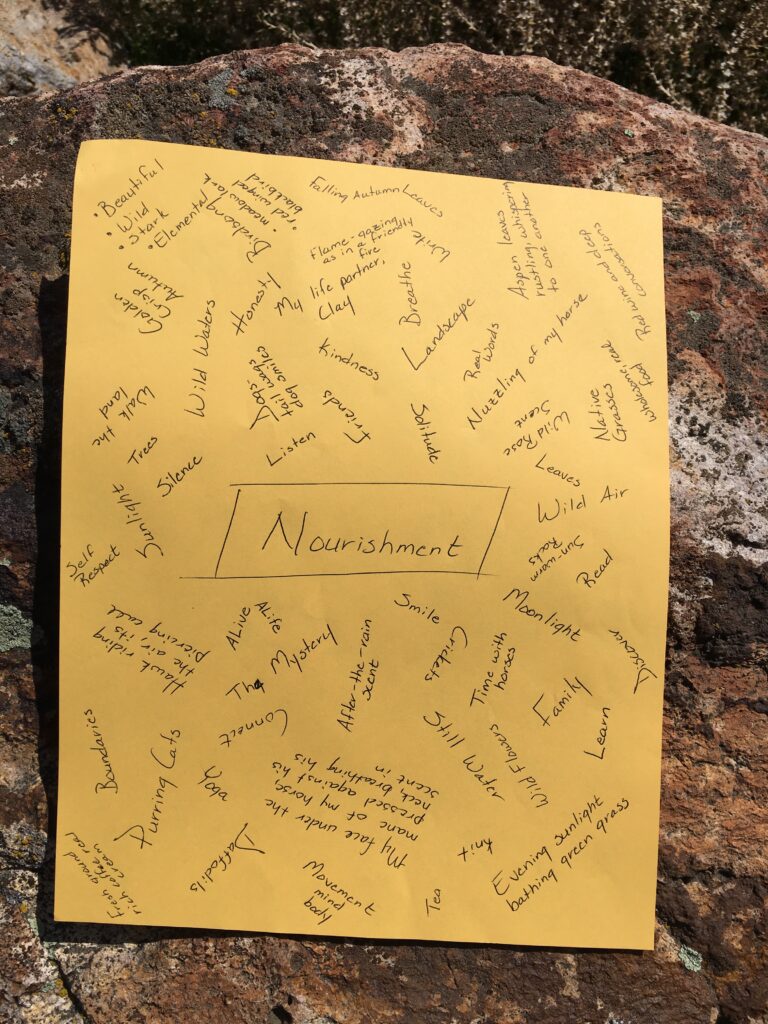 • Beautiful
• Wild
• Stark
• Elemental
Birdsong
• meadowlark
• red winged
blackbird
Falling Autumn Leaves
flame-gazing
as in a friendly
fire
Write
Aspen leaves
rustling, whispering
one to another
Red wine and deep
conversations
Golden
Crisp
Autumn
Wild Waters
Honesty
My life partner,
Clay
Breathe
Landscape
Real
Words
Nuzzling of my horse
Wholesome, real
food
Native
Grasses
Wild Rose
Scent
Kindness
Dogs:
tail wags
dog smiles
Friends
Solitude
Listen
Walk the
land
Trees
Silence
Sunlight
Leaves
Wild Air
Nourishment
Sun-warm
Rocks
Read
Self
Respect
Smile
Moonlight
Discover
Hawk riding
the air its
piercing call
ALive
ALife
The Mystery
After-the-rain
scent
Crickets
Time with
horses
Family
Learn
Boundaries
Purring Cats
Connect
Yoga
Still Water
Wild Flowers
My face under the
mane of my horse,
pressed against his
neck, breathing his
scent in
Fresh ground
rich coffee real
cream
Daffodils
Movement
mind
body
Tea
Knit
Evening sunlight
bathing green grass